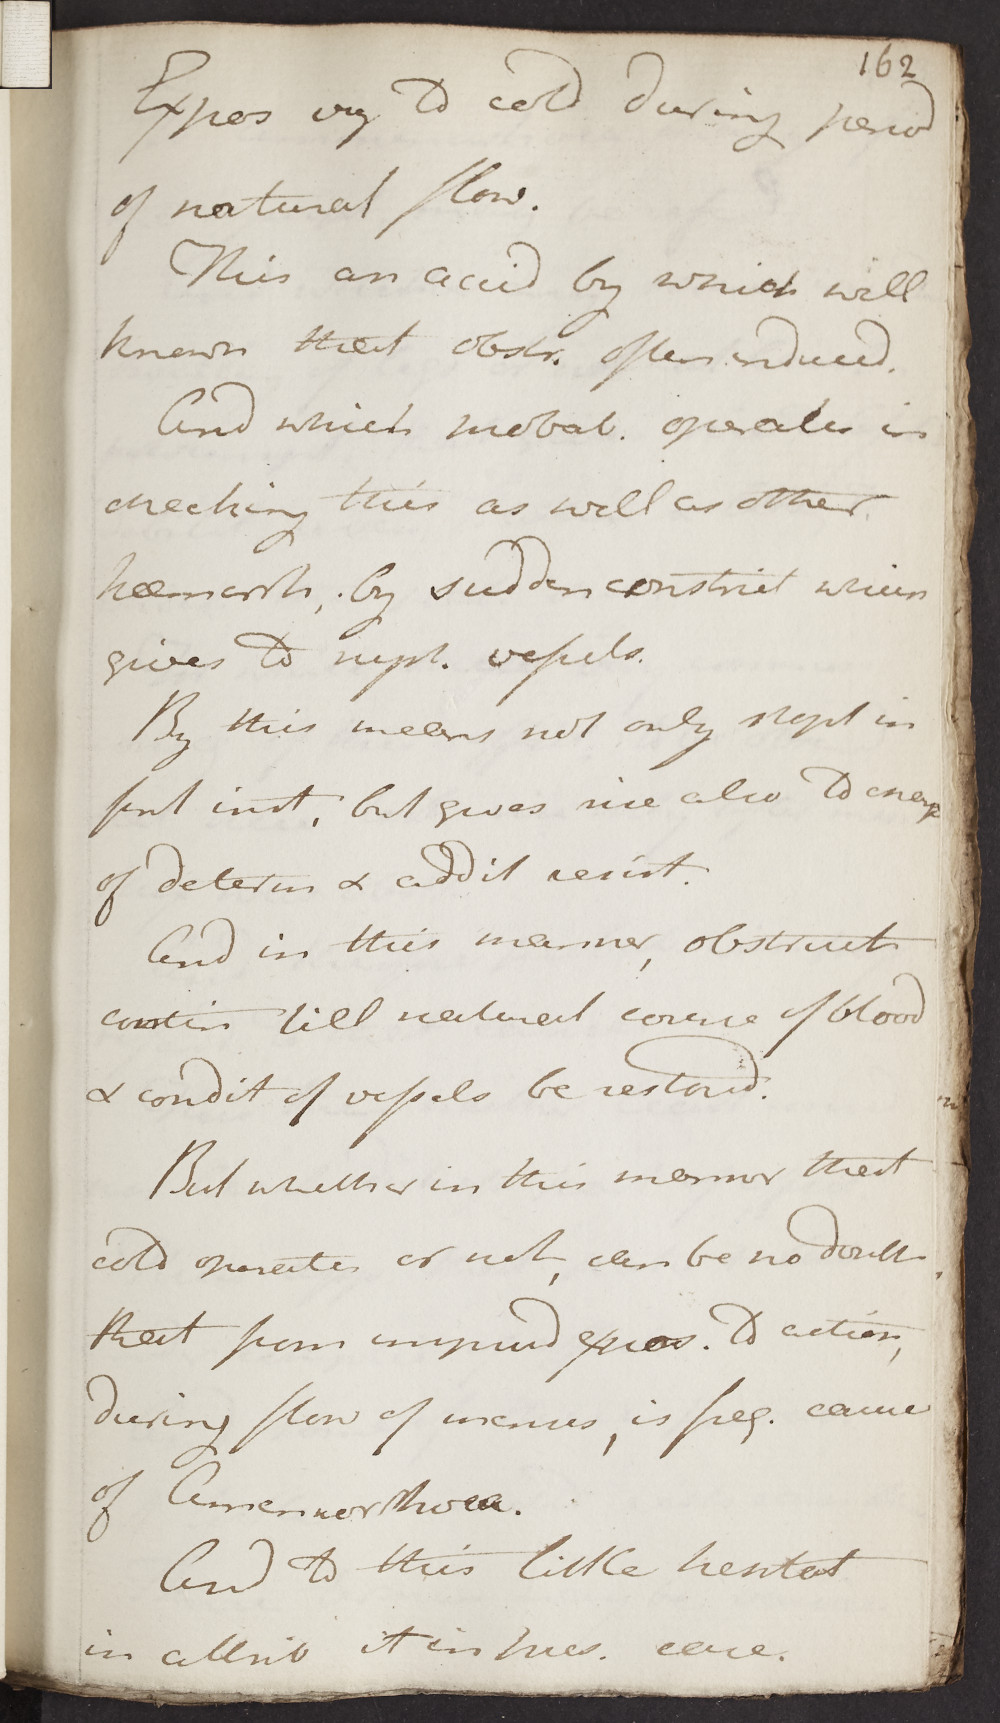 162
Expos to cold during period
of natural flow.
This an accid by which well
known that obstr. often induced.
And which probab. operates in
checking this as well as other
haemorrh, by sudden constrict which
gives to vessels.
By this means not only stopt in
inst, but gives rise also to
of determ & addit resist.
And in this manner, obstruct
contin till natural course of blood
& condit of vessels be restord.
But whether in this manner that
cold operates or not, can be no doubt,
that from expos. to action,
during flow of menses, is freq. cause
of Amenorrhoea.
And to this little hesitat
in attrib it in pres. case.